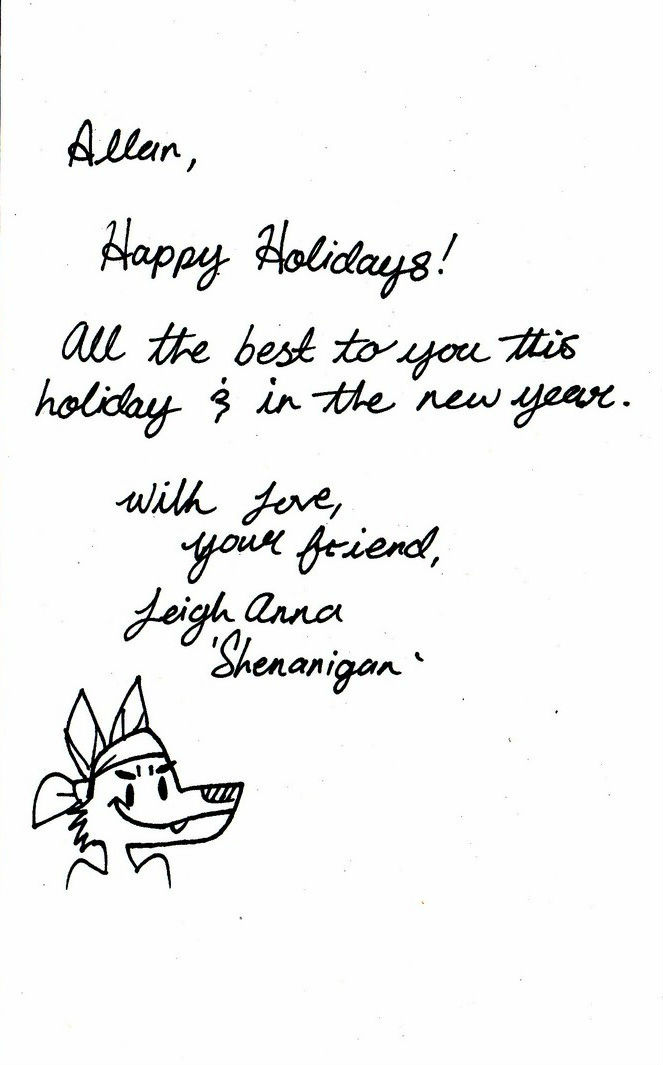 Allan,
Happy Holidays!
All the best to you this
holiday & in the new year.
With Love,
your friend,
Leigh Anna
'Shenanigan'